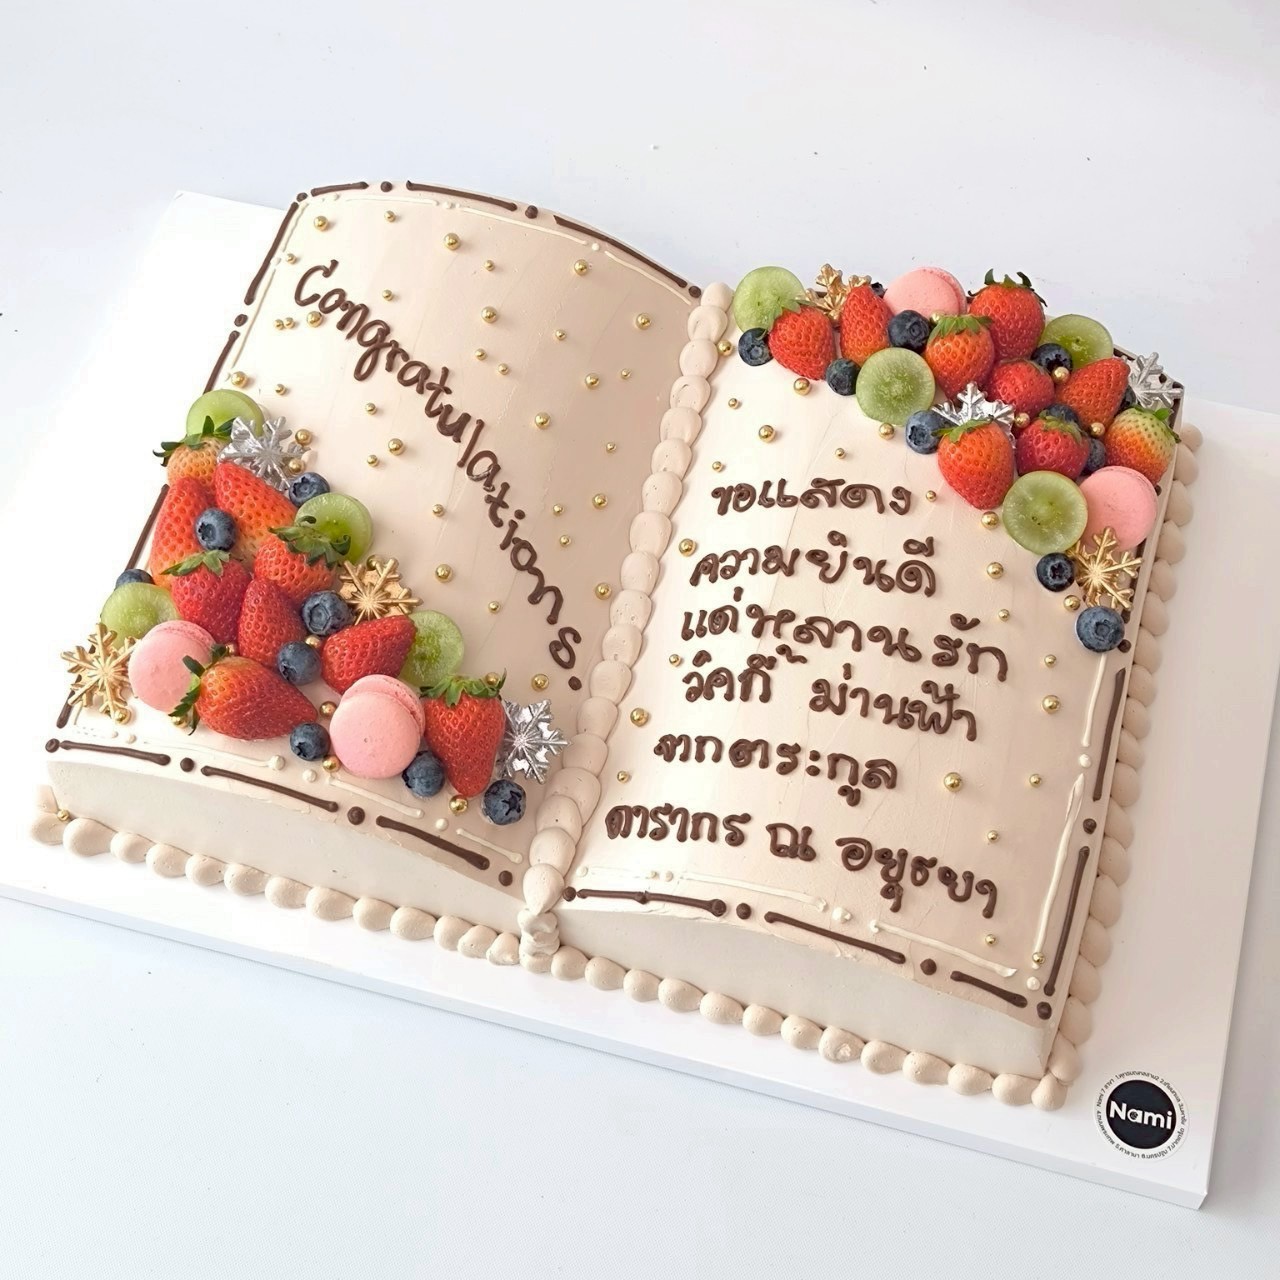 Congratulations.
ขอแสดง
ความยินดี
แด่หลานรัก
วัคกี้ ม่านฟ้า
จากตระกูล
ดารากร ณ อยุธยา
Nami